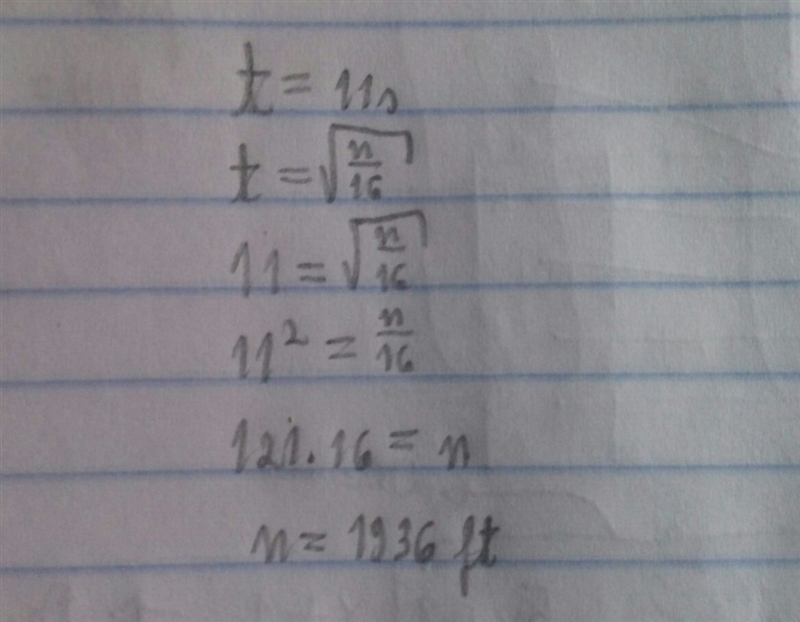 t = 11s
t = √(n/16)
11 = √(n/16)
11² = n/16
121 . 16 = n
n = 1936 ft